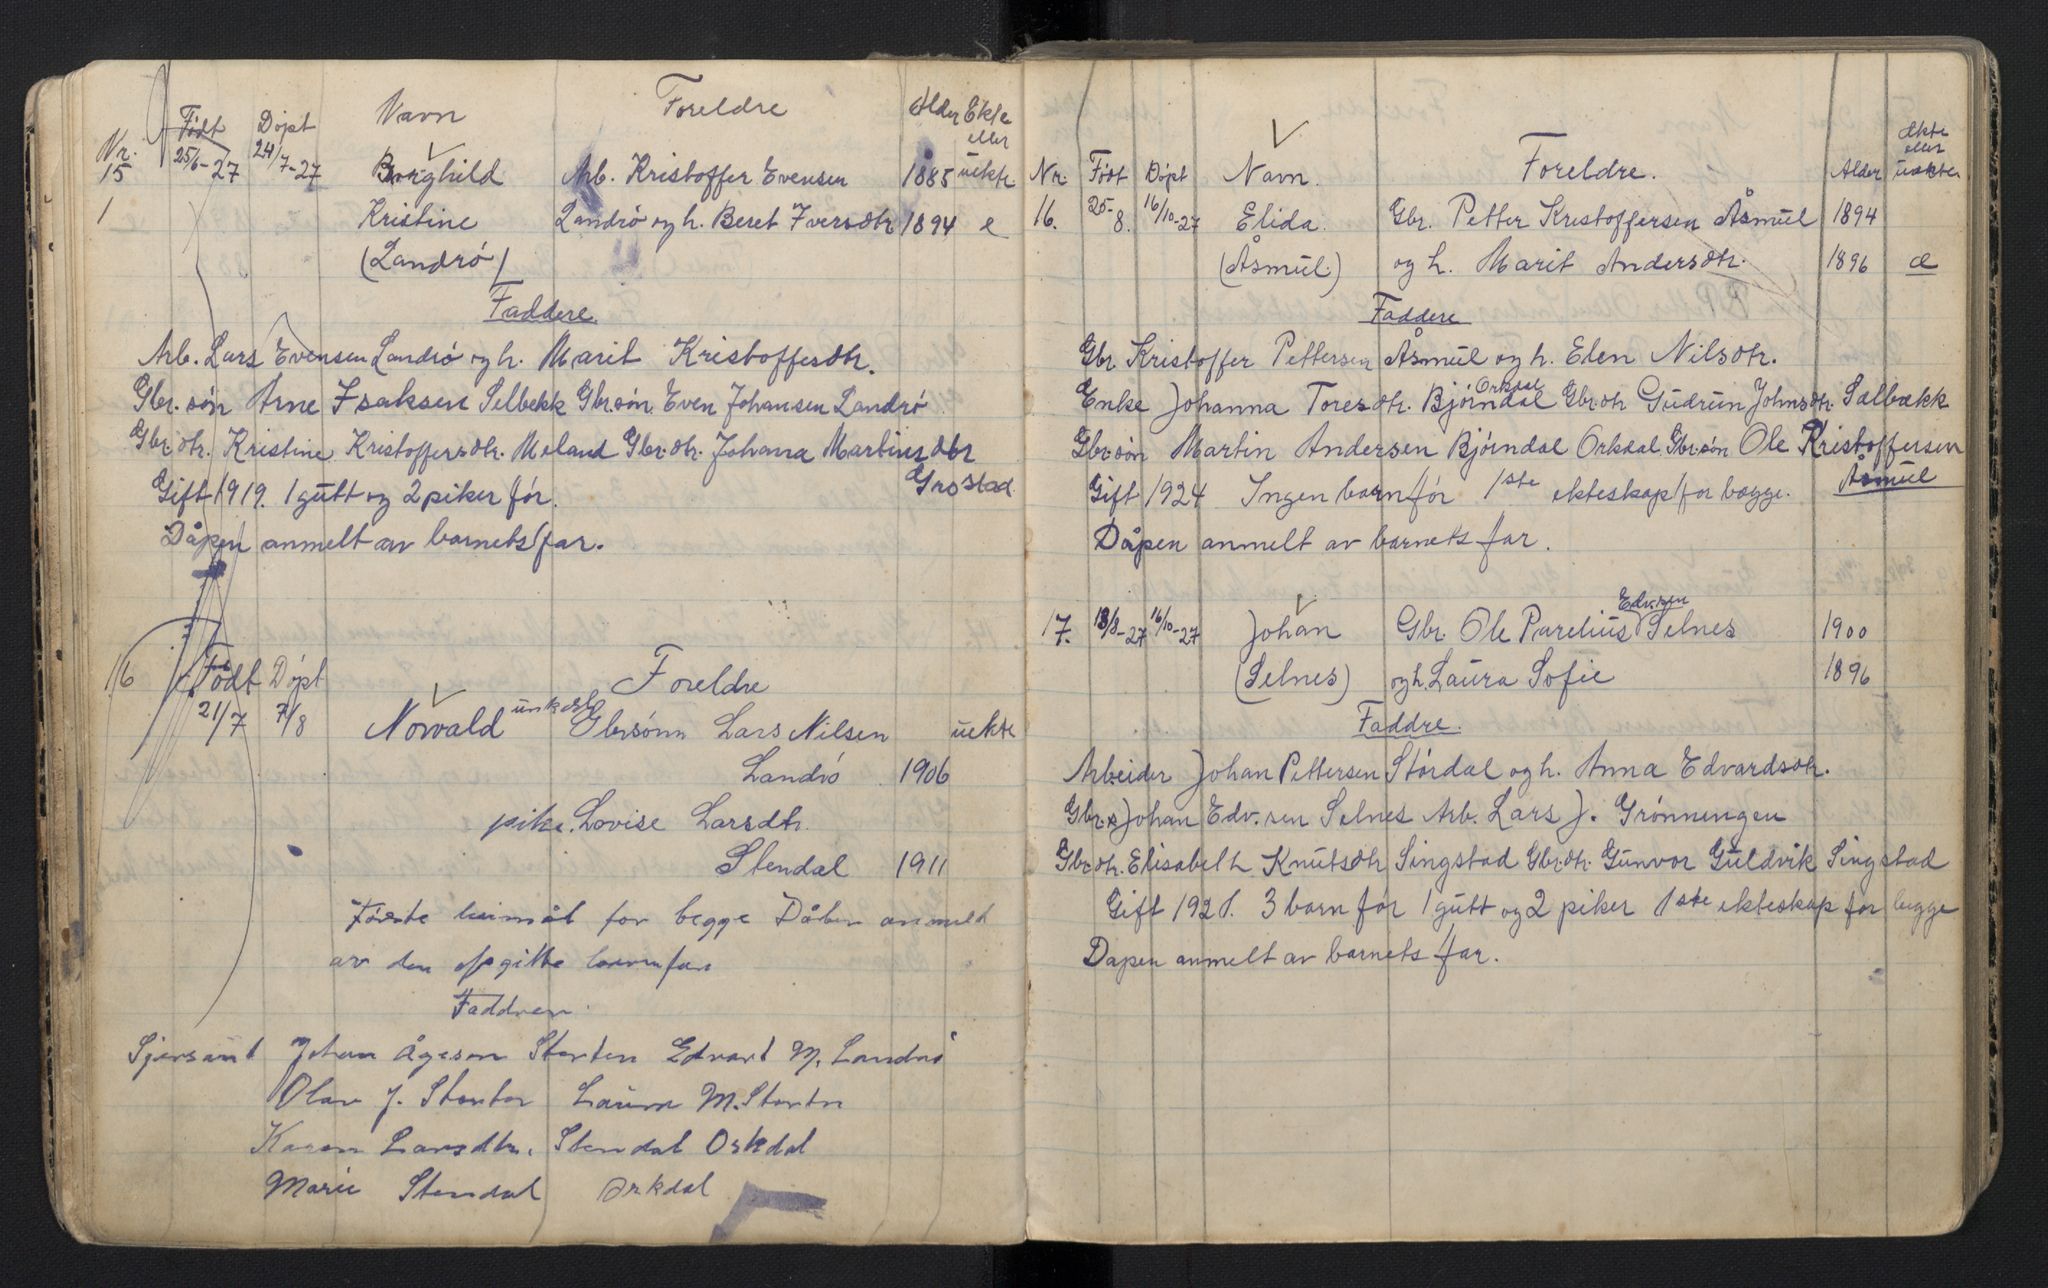 Nr. Født Døpt Navn Foreldre Alder Ekte eller
15 25/6-27 24/7-27 Borghild Arb. Kristoffer Evensen 1885 uekte
1 Kristine Landrø og h. Beret Iversdtr 1894 e
(Landrø)
Faddere
Arb. Lars Evensen Landrø og h. Marit Kristoffesdtr.
Gbr.søn Arne Isaksen Selbekk Gbr.søn Even Johansen Landrø
Gbr.dtr. Kristine Kristoffersdtr. Meland Gbr.dtr. Johana Martinsdtr
Gift 1919. 1 gutt og 2 piker før. Grostad
Dåpen anmelt av barnets far.
16 Født Døpt Foreldre
21/7 7/8 Norvald Gbrsønn Lars Nilsen uekte
Landrø 1906
pike. Lovise Larsdtr.
Stendal 1911
Første leiermål for begge Dåben anmeldt
av den opgitte barnefar
Faddren
Johan Ågesen Stenten Edvart M. Landrø
Olav J. Laura M.
Karen Larsdtr. Stendal Orkdal
Marie Stendal Orkdal
Nr. Født Døpt Navn. Foreldre. Alder ekte eller uekte
16. 25-8. 16/10-27 Elida. Gbr. Petter Kristoffersen Åsmul 1894
(Åsmul.) og h. Marit Andersdtr. 1896 æ
Faddere
Gbr. Kristoffer Pettersen Åsmul og h. Elen Nilsdtr.
Enke Johanna Toresdtr. Bjørndal Orkdal Gbr.dtr Gudrun Johnsdtr. Sælbækk
Gbr.søn Martin Andersen Bjørndal Orkdal. Gbr.søn Ole Kristoffersen
Gift 1924 Ingen barn før 1ste ekteskap for begge. Åsmul
Dåpen anmelt av barnets far.
17. 18/8-27 16/10-27 Johan Gbr. Ole Parelius Edv.sen Selnes 1900
(Selnes) og h. Laura Sofie 1896
Faddre.
Arbeider Johan Pettersen Størdal og h. Anna Edvardsdtr.
Gbr. Johan Edv.sen Selnes Arb. Lars J. Grønningen
Gbr.dtr. Elisabeth Knutsdtr Singstad Gbr.dtr. Gunvor Guldvik Singstad
Gift 1921. 3 barn før 1 gutt og 2 piker 1ste ekteskap for begge
Dapen anmelt av barnets far.